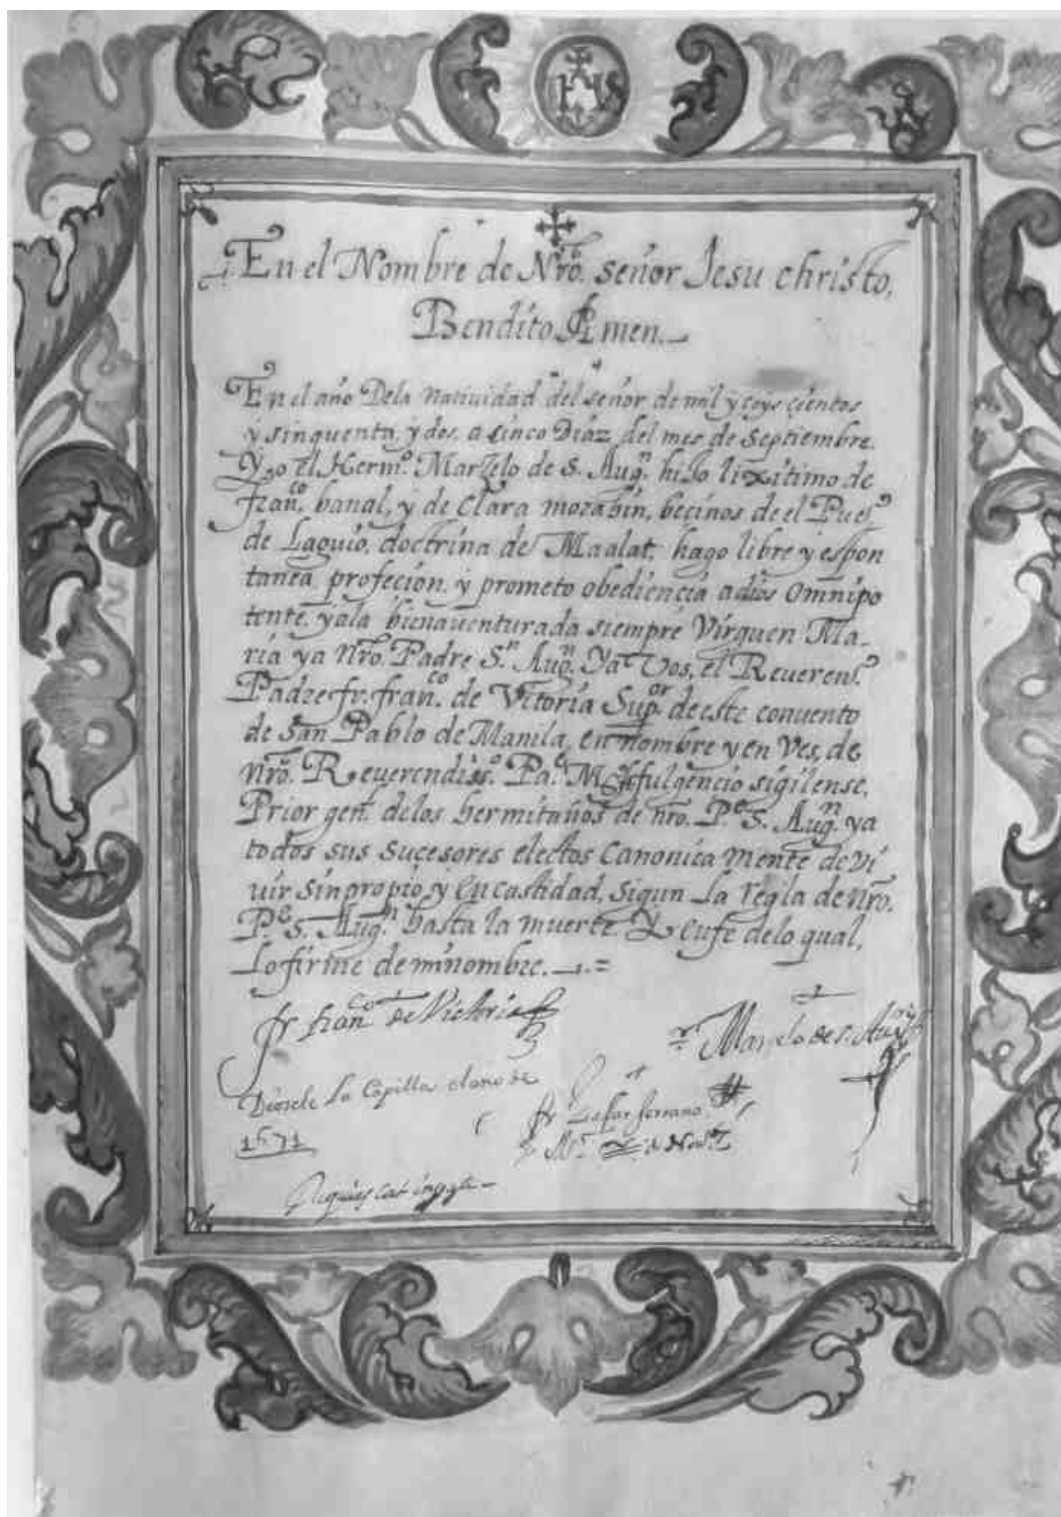 IHS
En el Nombre de Nrō. señor Jesu christo,
Bendito Amen.
En el año Dela Natiuidad del señor de mil y seys çientos
y sinquenta y dos, a sinco Diaz del mes de Septiembre.
Yo el Hermº. Marzelo de S. Augⁿ. hijo lixitimo de
franᶜᵒ. banal, y de Clara morabin, becinos de el Pueᵒ
de Laguio, doctrina de Maalat, hago libre y espon
tanea profeçion, y prometo obediençia adios Omnipo
tente, yala bienauenturada siempre Virguen Ma-
ria ya Nrō. Padre Sⁿ. Augⁿ. Ya Vos, el Reverenᵒ.
Padre fr. franᶜᵒ. de Vitoria Supᵒʳ. de este convento
de San Pablo de Manila, en nombre y en Ves, de
Nrō. Reverendissᵒ. Pᵃ. Mᵒ fulgencio sigilense,
Prior genˡ. delos hermitaños de nrō. Pᵉ. S. Augⁿ. ya
todos sus sucesores electos Canonica mente de Vi
uir sin propio, y en castidad, sigun La regla de Nrō.
Pᵉ S. Augⁿ. hasta la muerte. Y en fe delo qual,
Lo firme de mi nombre.
fr franᶜᵒ de Victoria
Marzelo de S. Augⁿ
Diosele La Capilla el año de
1671
fr serrano
Mᵒ. de Novˢ